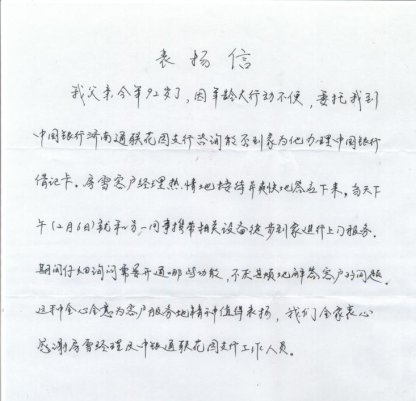 表扬信
我父亲今年92岁了，因年龄大行动不便，委托我到
中国银行济南通联花园支行咨询能否到家为他办理中国银行
借记卡。房雪客户经理热情地接待并爽快地答应下来。当天下
午（2月6日）就和另一同事携带相关设备徒步到家进行上门服务。
期间仔细询问需要开通哪些功能，不厌其烦地解答客户的问题。
这种全心全意为客户服务地精神值得表扬，我们全家衷心
感谢房雪经理及中银通联花园支行工作人员。